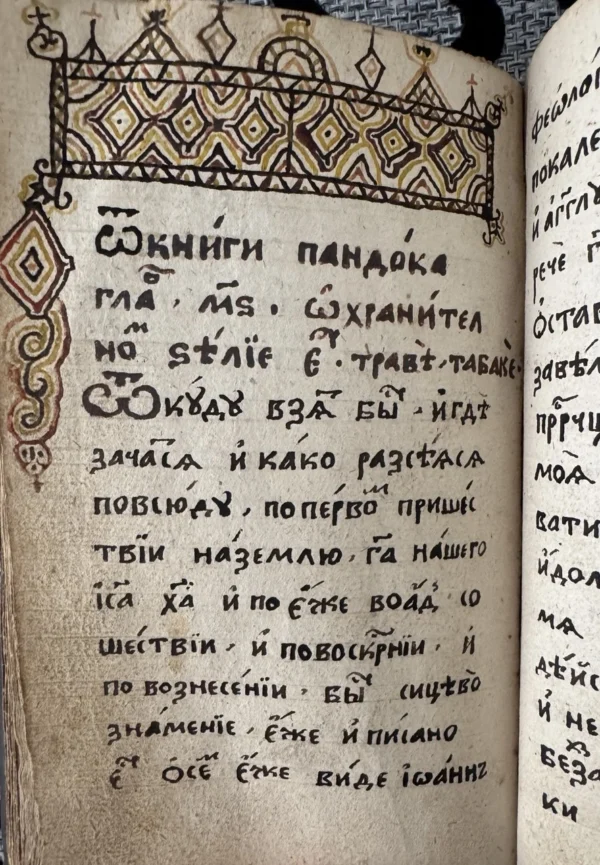 Ѿ кни́ги пандо́ка
гла҃. м҃ѕ. ѡ҆храни́тел
но҇м ѕѣ́лїе є҆҇. травѣ̀. табакѣ̀.
Ѿкꙋ́дꙋ взѧ̑ бы҇. и҆гдѣ̀
зача́сѧ и҆ ка́ко разсѣ́ѧсѧ
повсю́дꙋ, по пе́рвом пришес
твїи на́землю. гд҇а на́шего
і҆са҃ ха҃ и҆ по є҆́же во а҆д со
ше́ствїи. и҆ повоскр҇нїи. и҆
по вознесе́нїи. бы҇ сицѣво
зна́менїе, є҆́же и҆ пи́сано
є҆҇ ѻ҆ се҇ є҆́же ви́де і҆ѡа́ннъ
феѡло́г
покале
и҆ а҆́гг҃лꙋ
речѐ
ѻ҆став
завѣ́
прⷪ҇рчи
моѧ̀
вати
и҆́дол
мѧ
дѣ́йс
и҆ не
без
ки